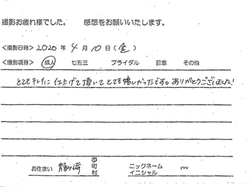 撮影お疲れ様でした。　感想をお願いいたします。
<撮影日時> 2020 年 4 月 10 日 (金)
<撮影項目> 成人　七五三　ブライダル　記念　その他
とてもきれいに仕上げて頂いてとても嬉しかったです。ありがとうございました!
お住まい　市町村　ニックネーム　イニシャル　m